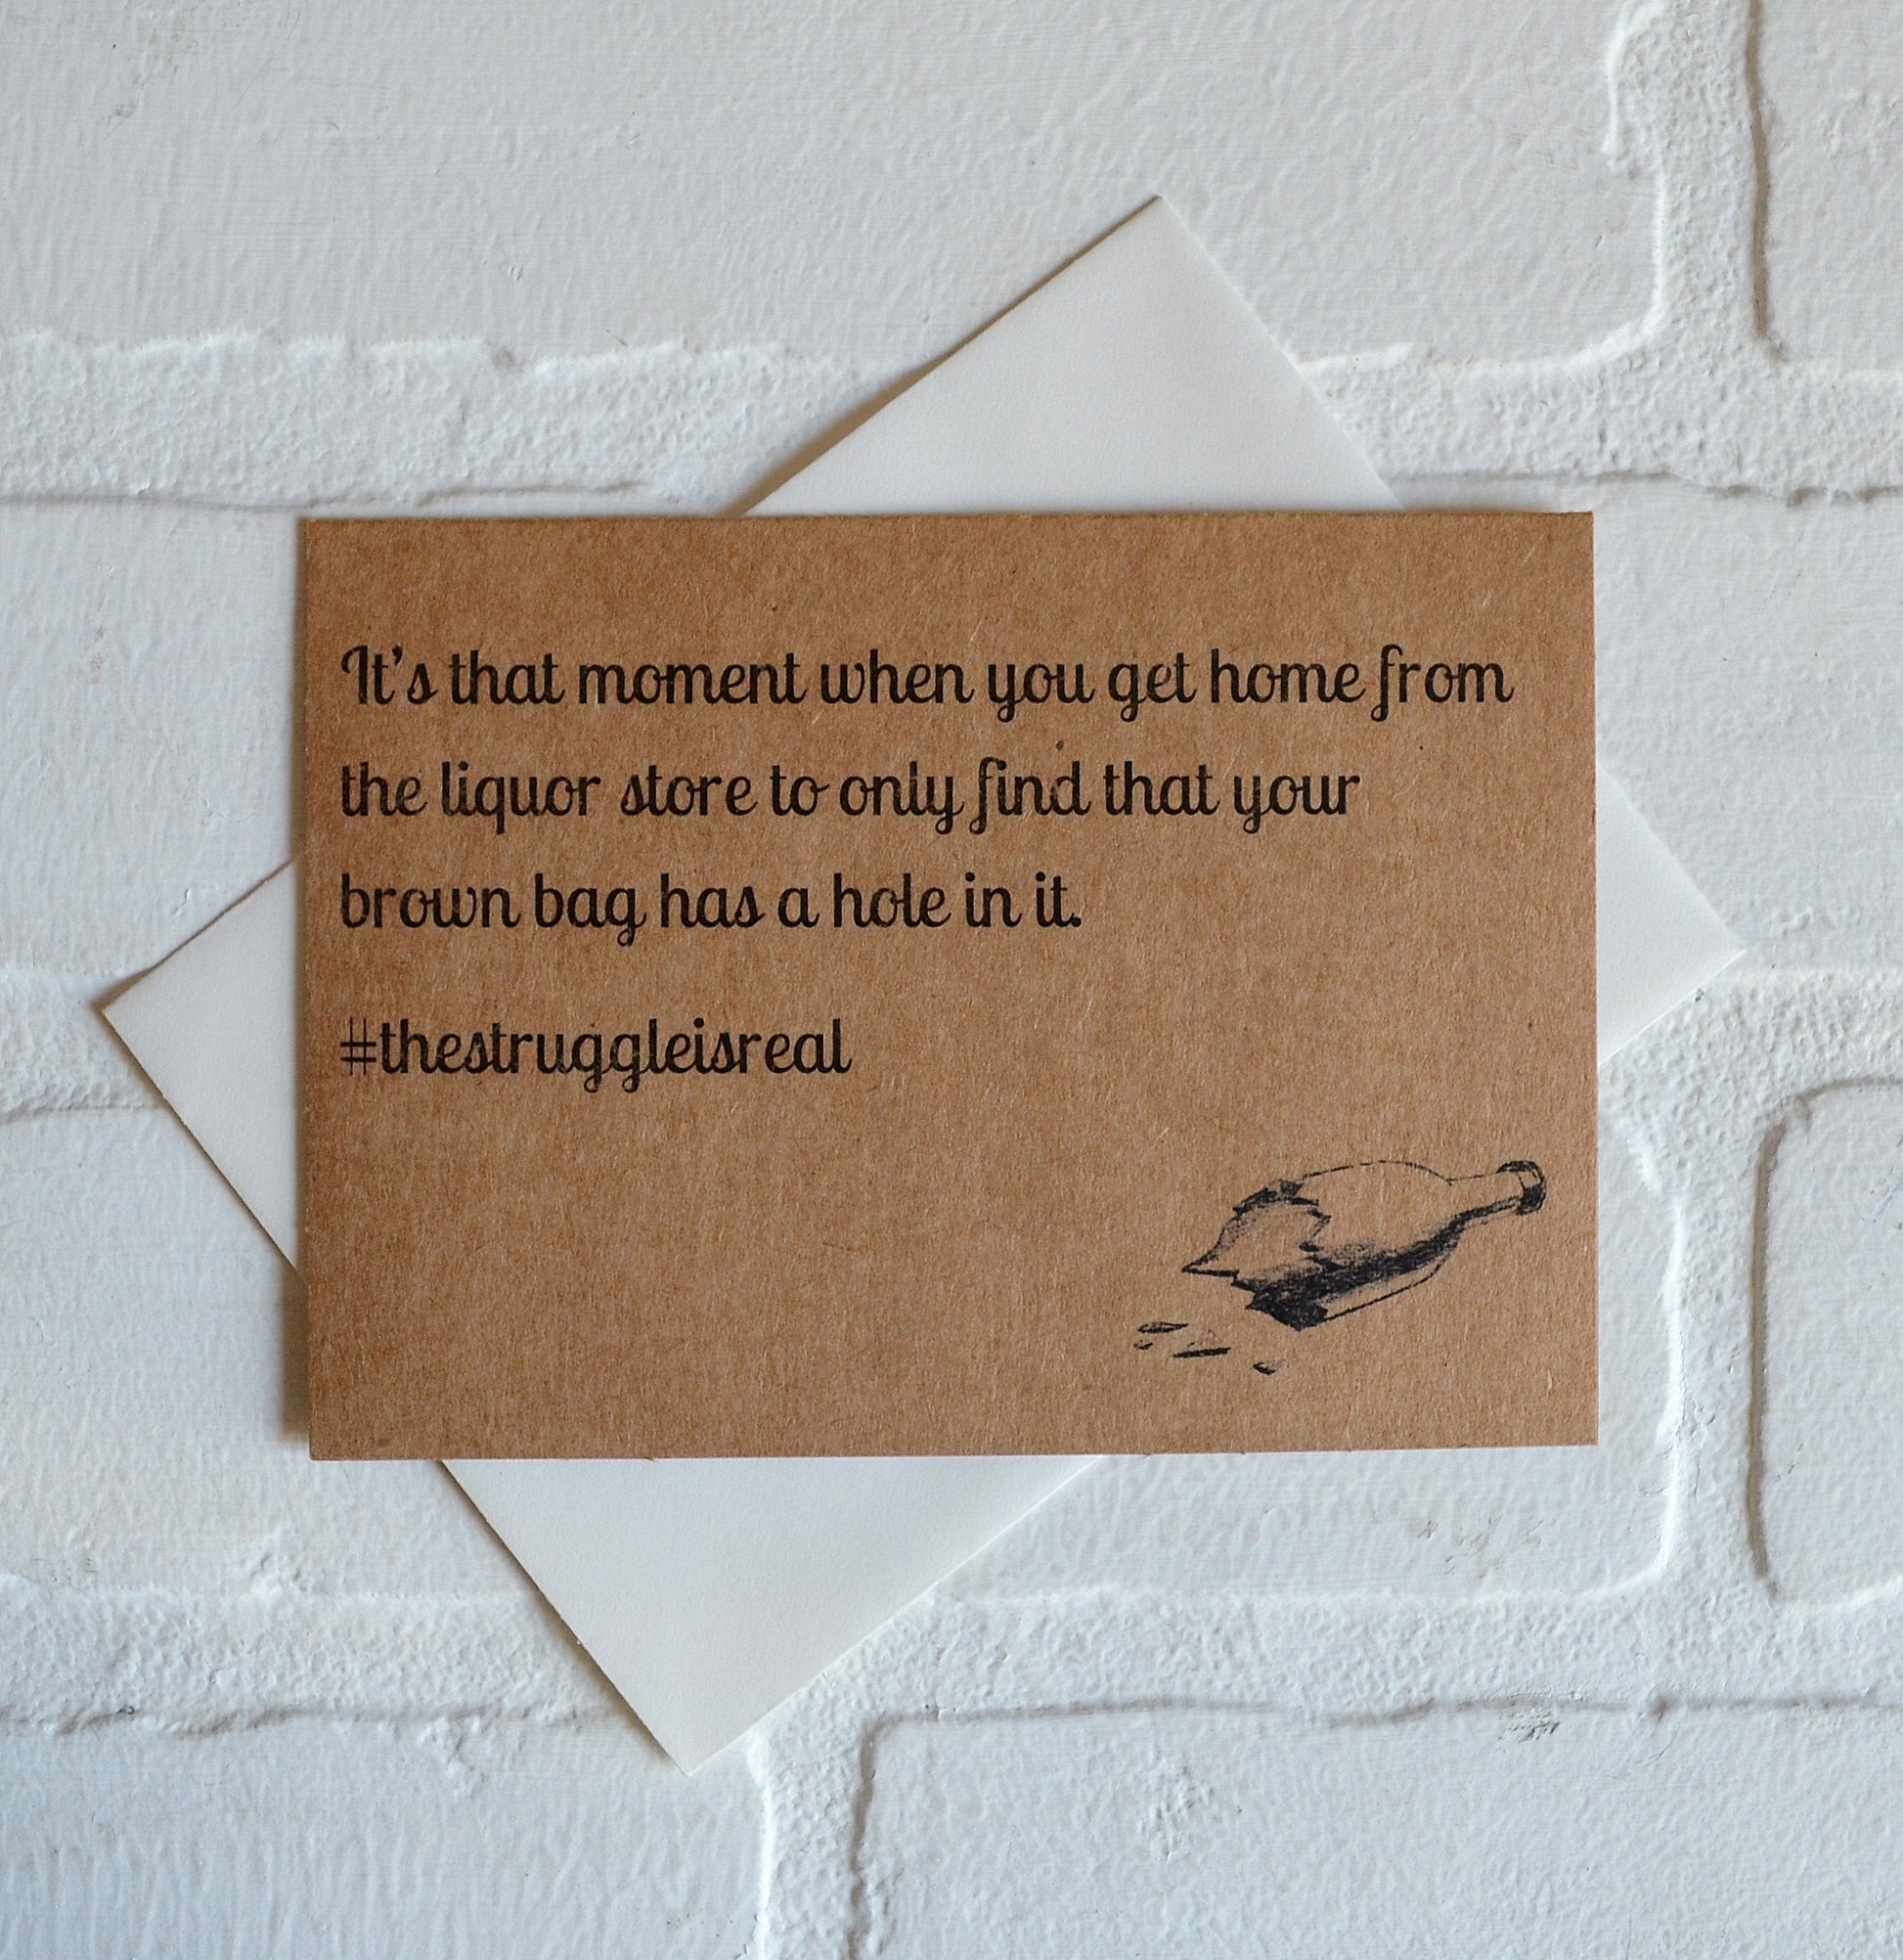 It's that moment when you get home from
the liquor store to only find that your
brown bag has a hole in it.
#thestruggleisreal